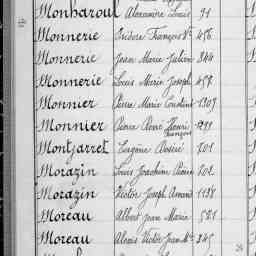 Monharoul Alexandre Louis 91
Monnerie Isidore François Mie 456
Monnerie Jean Marie Julien 344
Monnerie Louis Marie Joseph 458
Monnier Pierre Marie Constant 1307
Monnier Pierre René Henri
François
Montjarret Eugène Désiré 201
Morazin Louis Joachim Pierre 202
Morazin Victor Joseph Amand 1198
Moreau Albert Jean Marie 581
Moreau Alexis Victor Jean Mie 345